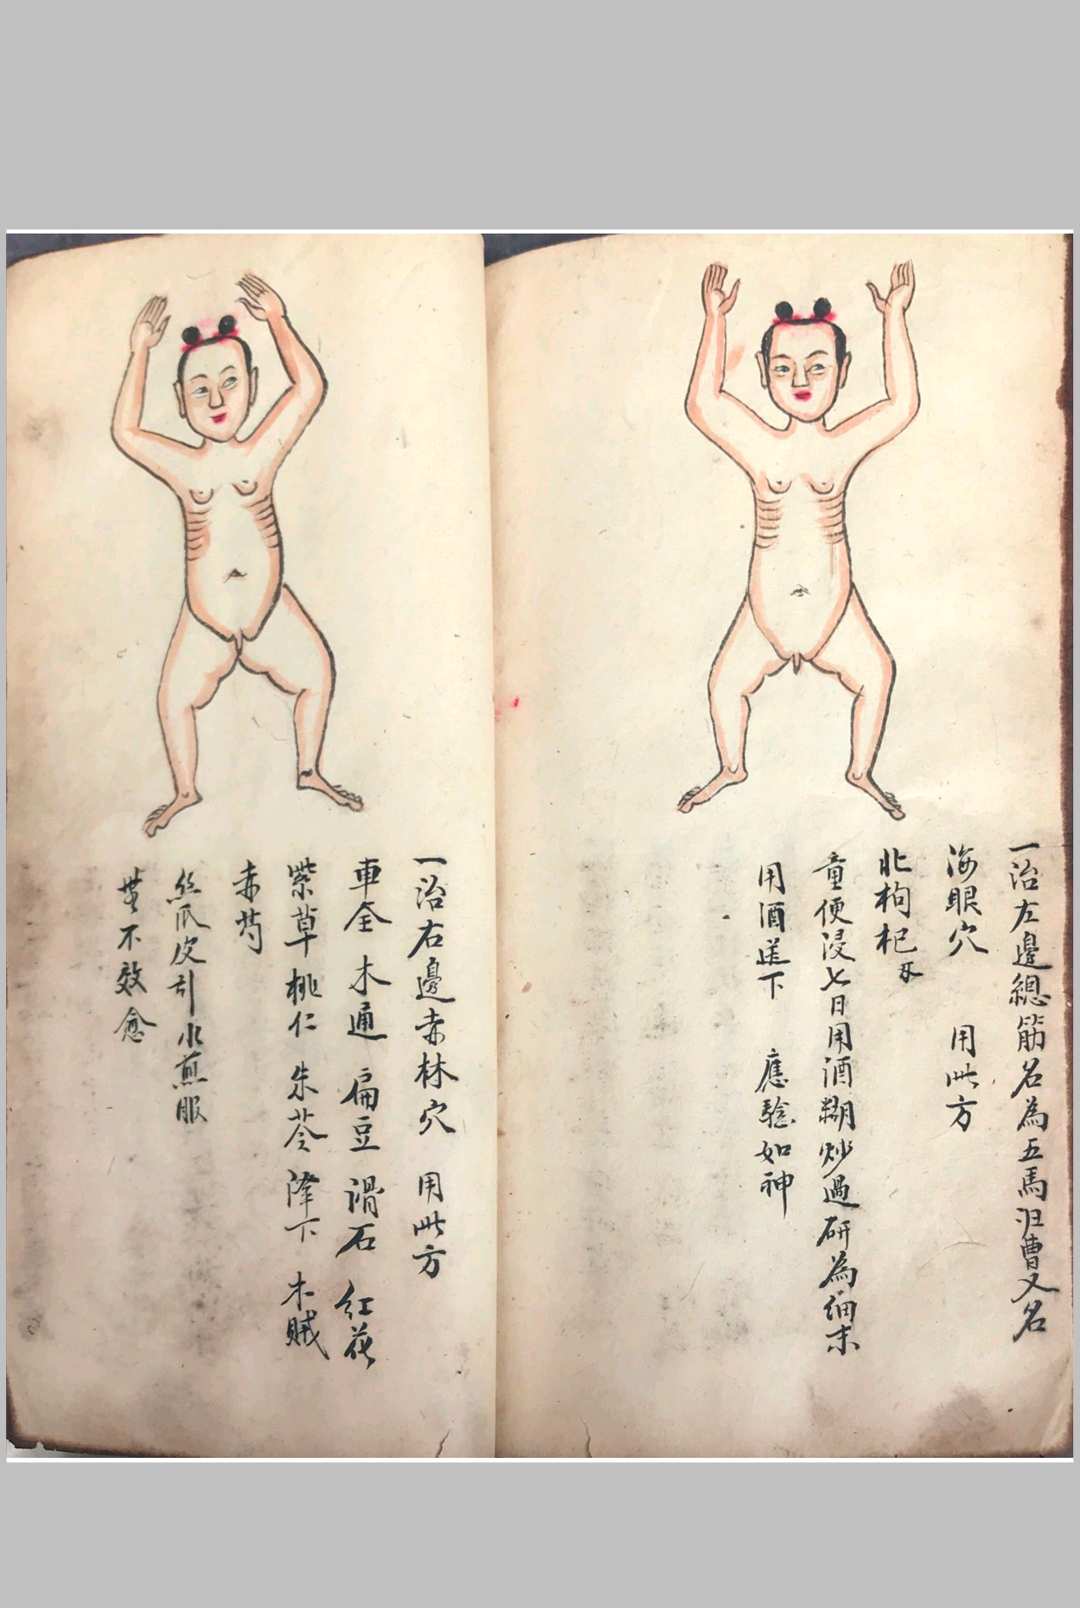 一治左邊總筋名為五馬归曹又名
海眼穴 用此方
北枸杞
童便浸七日用酒糊炒過研為細末
用酒送下 應驗如神
一治右邊赤林穴 用此方
車全 木通 扁豆 滑石 紅花
紫草 桃仁 朱苓 澤下 木賊
赤芍
絲瓜皮引水煎服
無不效愈